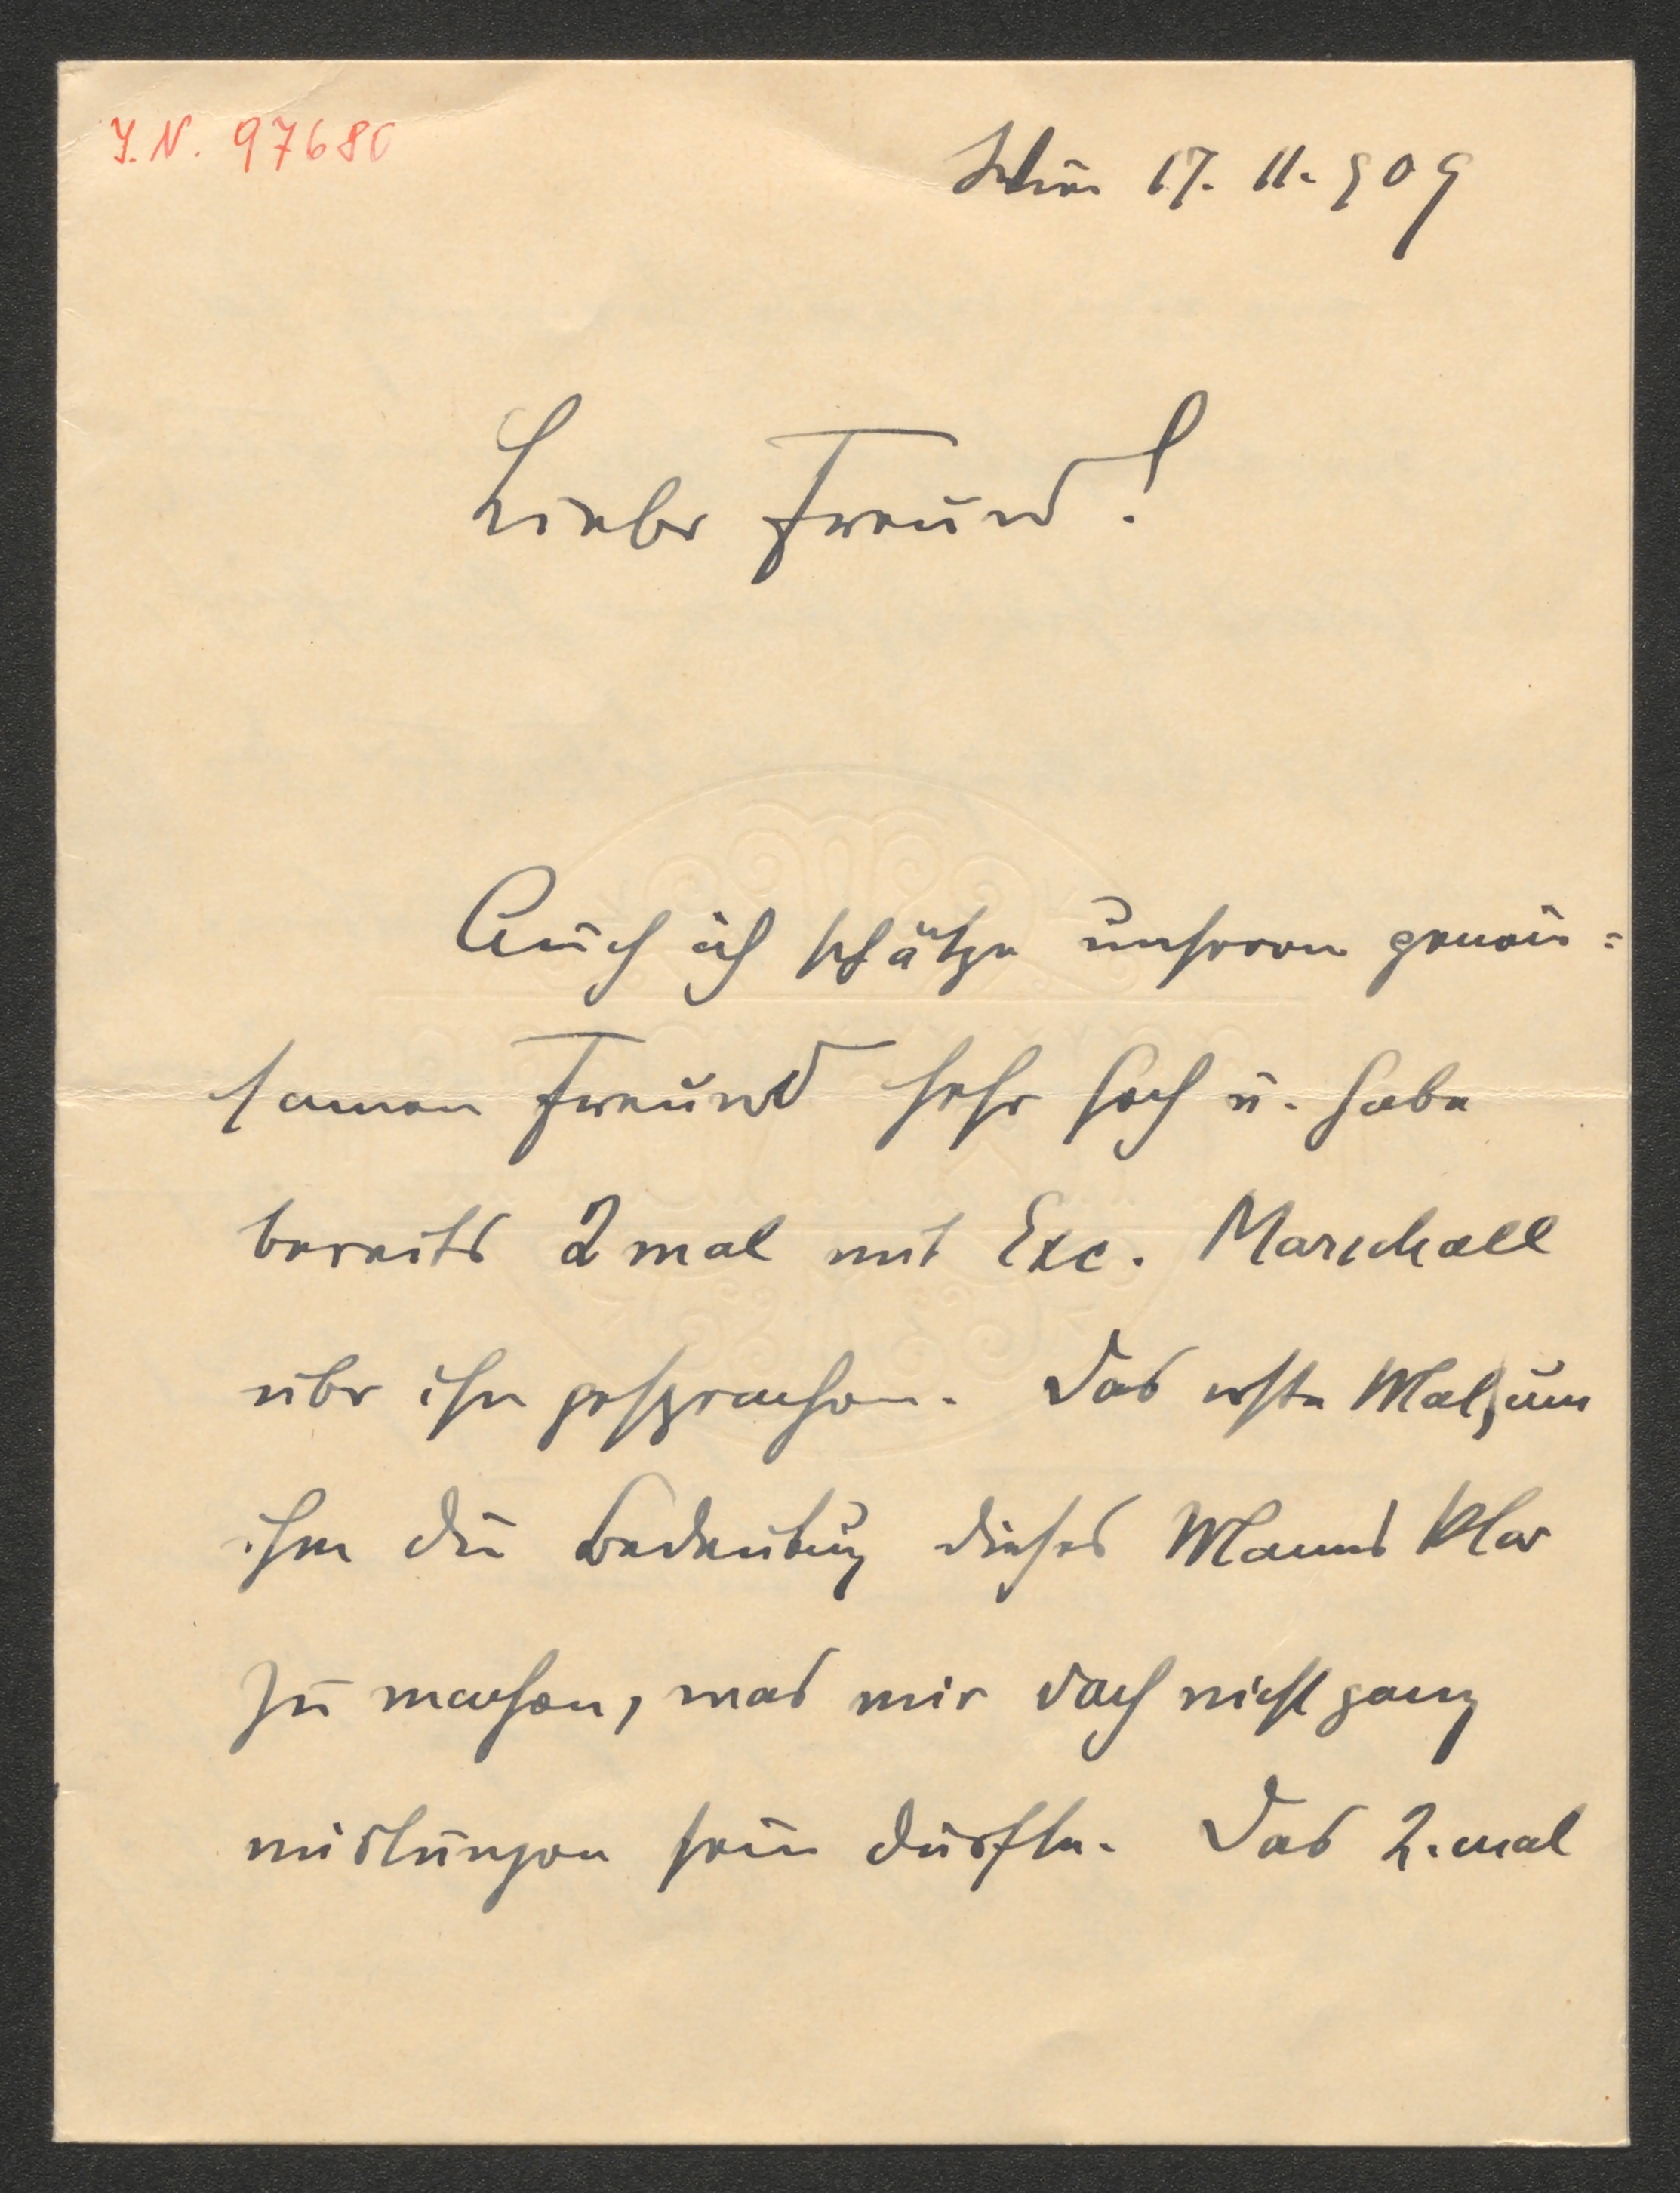 J.N. 97680
Wien 17. 11. 909
Lieber Freund!
Auch ich schätze unseren gemein=
samen Freund sehr hoch u. habe
bereits 2 mal mit Exc. Marschall
über ihn gesprochen. Das erste Mal, um
ihm die Bedeutung dieses Manns klar
zu machen, was mir doch nicht ganz
mislungen sein dürfte. Das 2. mal